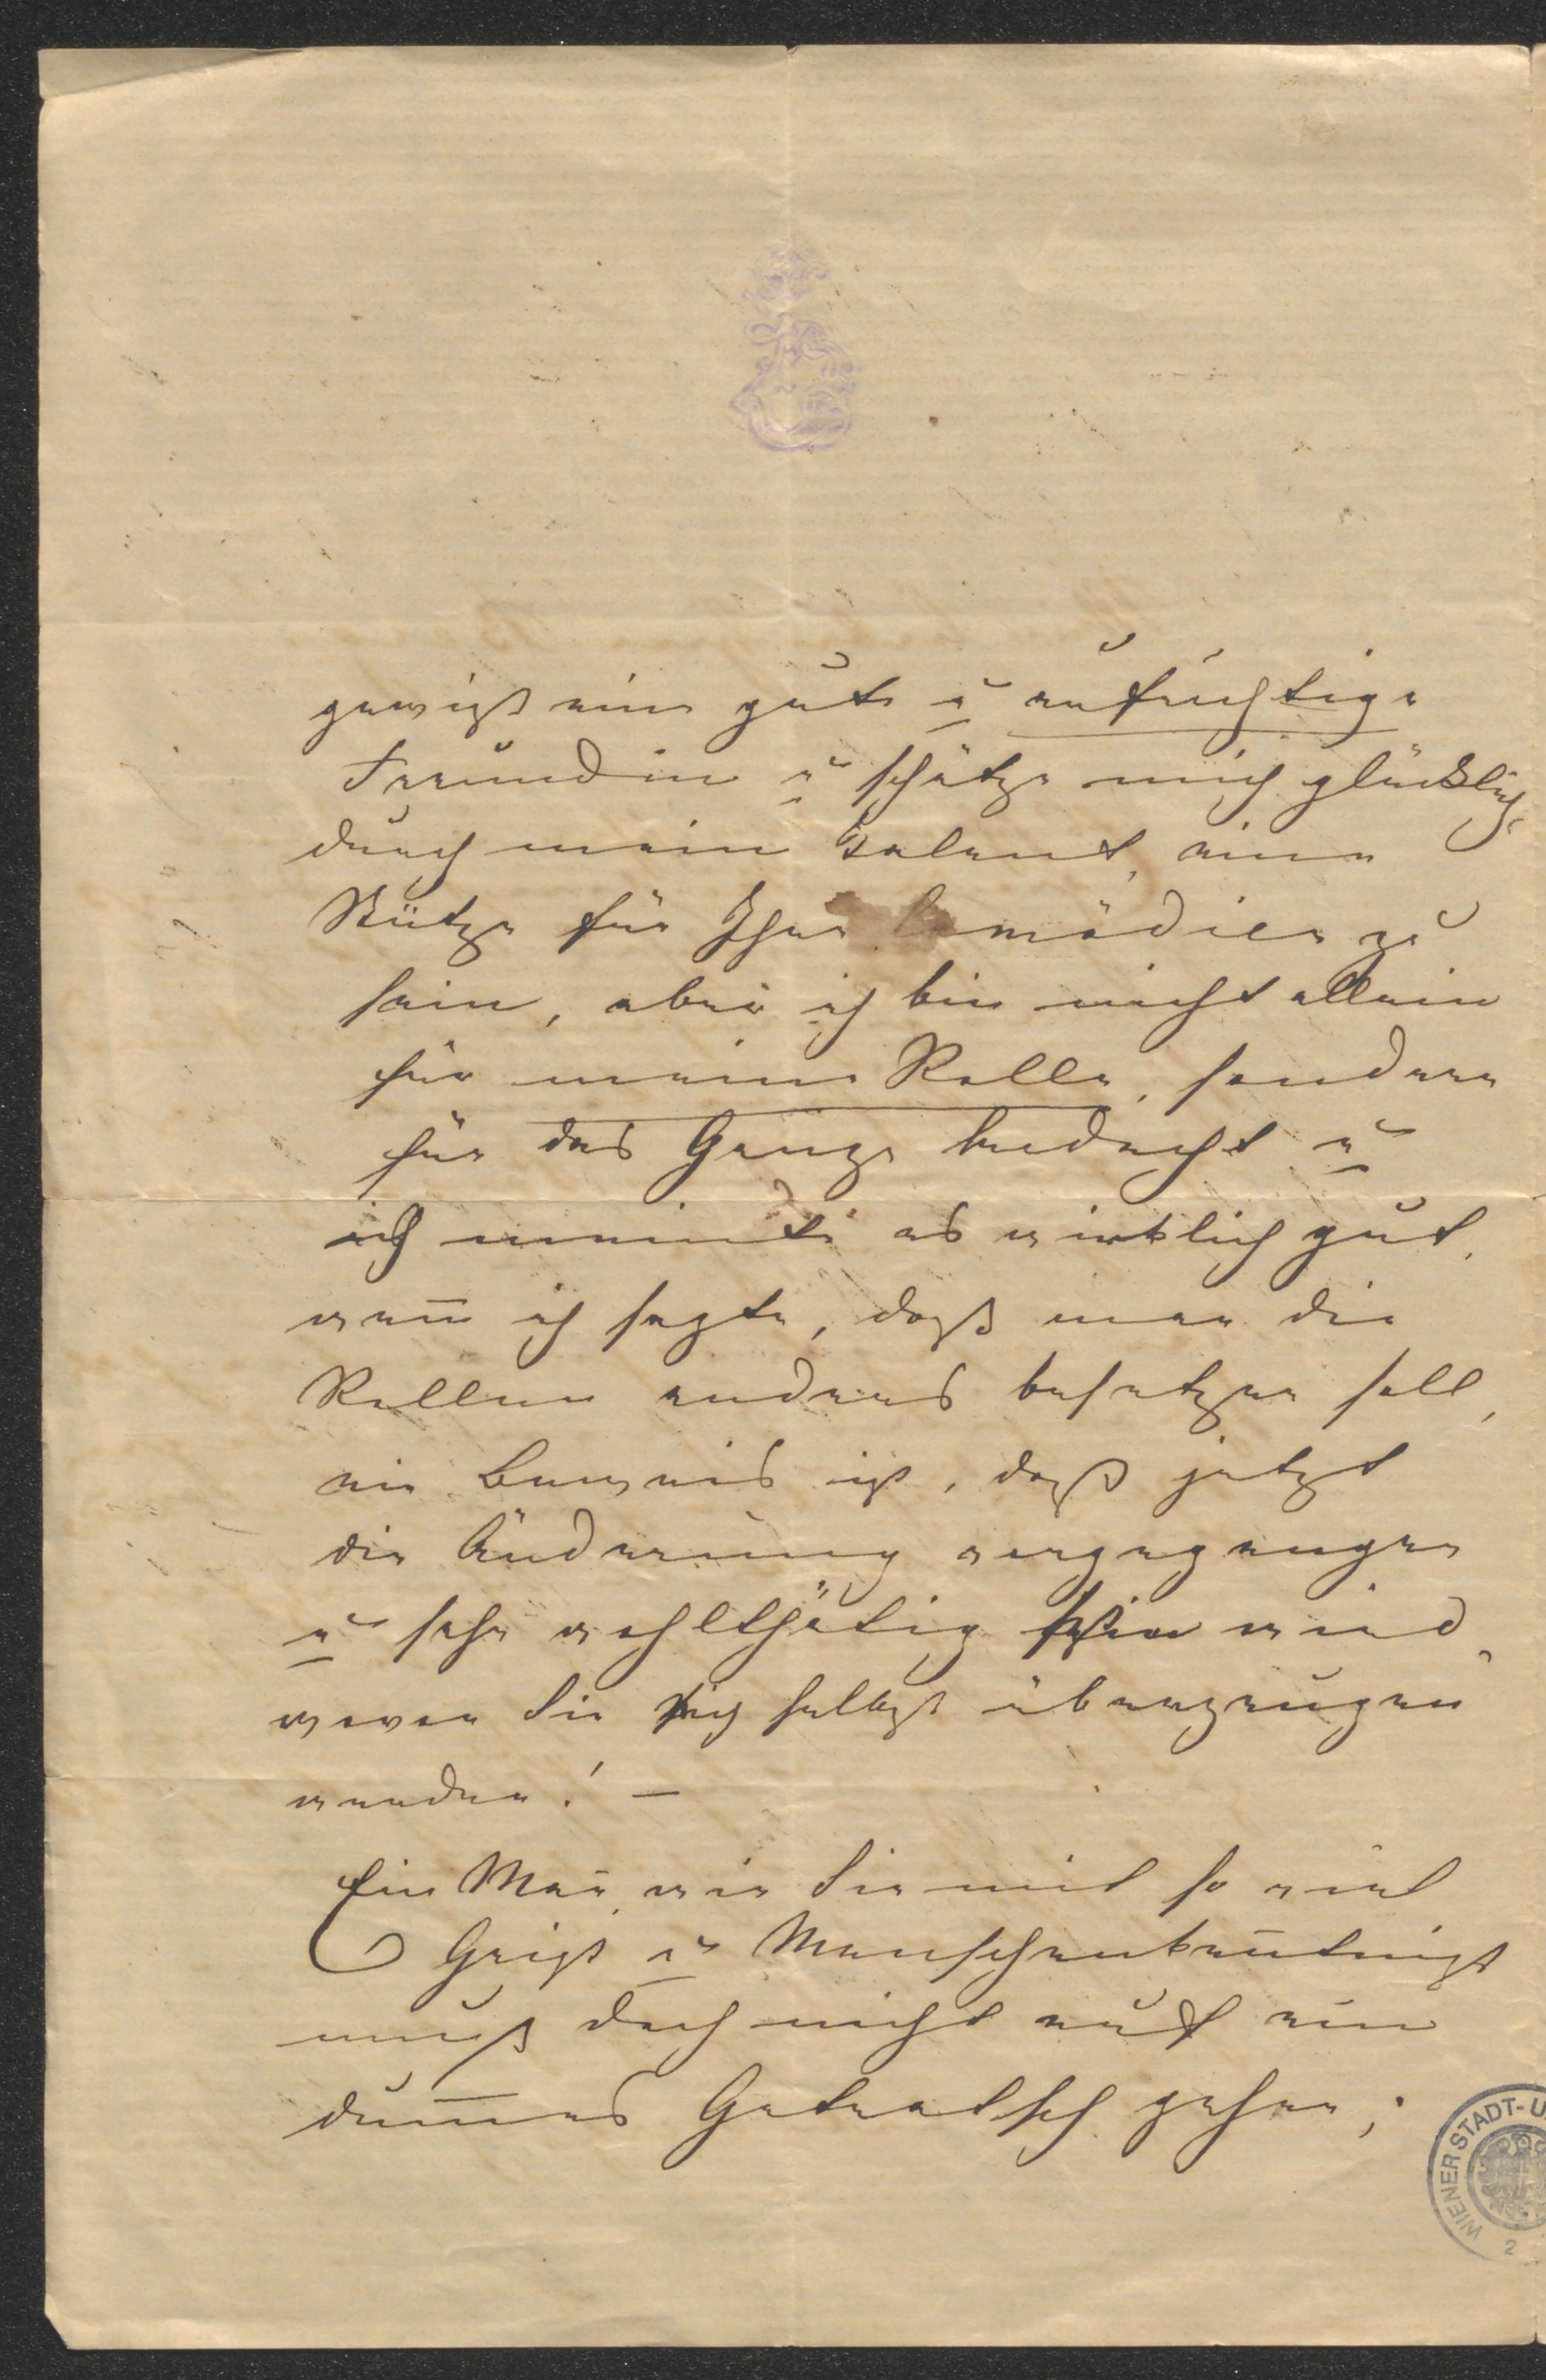 gewiß eine gute u aufrichtige
Freundin u schätze mich glücklich,
durch mein Talent, eine
Stütze für Ihre Comödien zu
sein, aber ich bin nicht allein
für meine Rolle, sondern
für das Ganze bedacht u
ich meinte es wirklich gut,
wen̄ ich sagte, daß man die
Rollen anders besetzen soll,
ein Beweis ist, daß jetzt
die Änderung vorgegangen
u sehr wohlthätig sein wird,
wovon Sie sich selbst überzeugen
werden! —
Ein Man̄, wie Sie mit so viel
Geist u Menschenken̄tnißt
muß doch nicht auf ein
dum̄es Getratsch gehen;
WIENER STADT-U
2